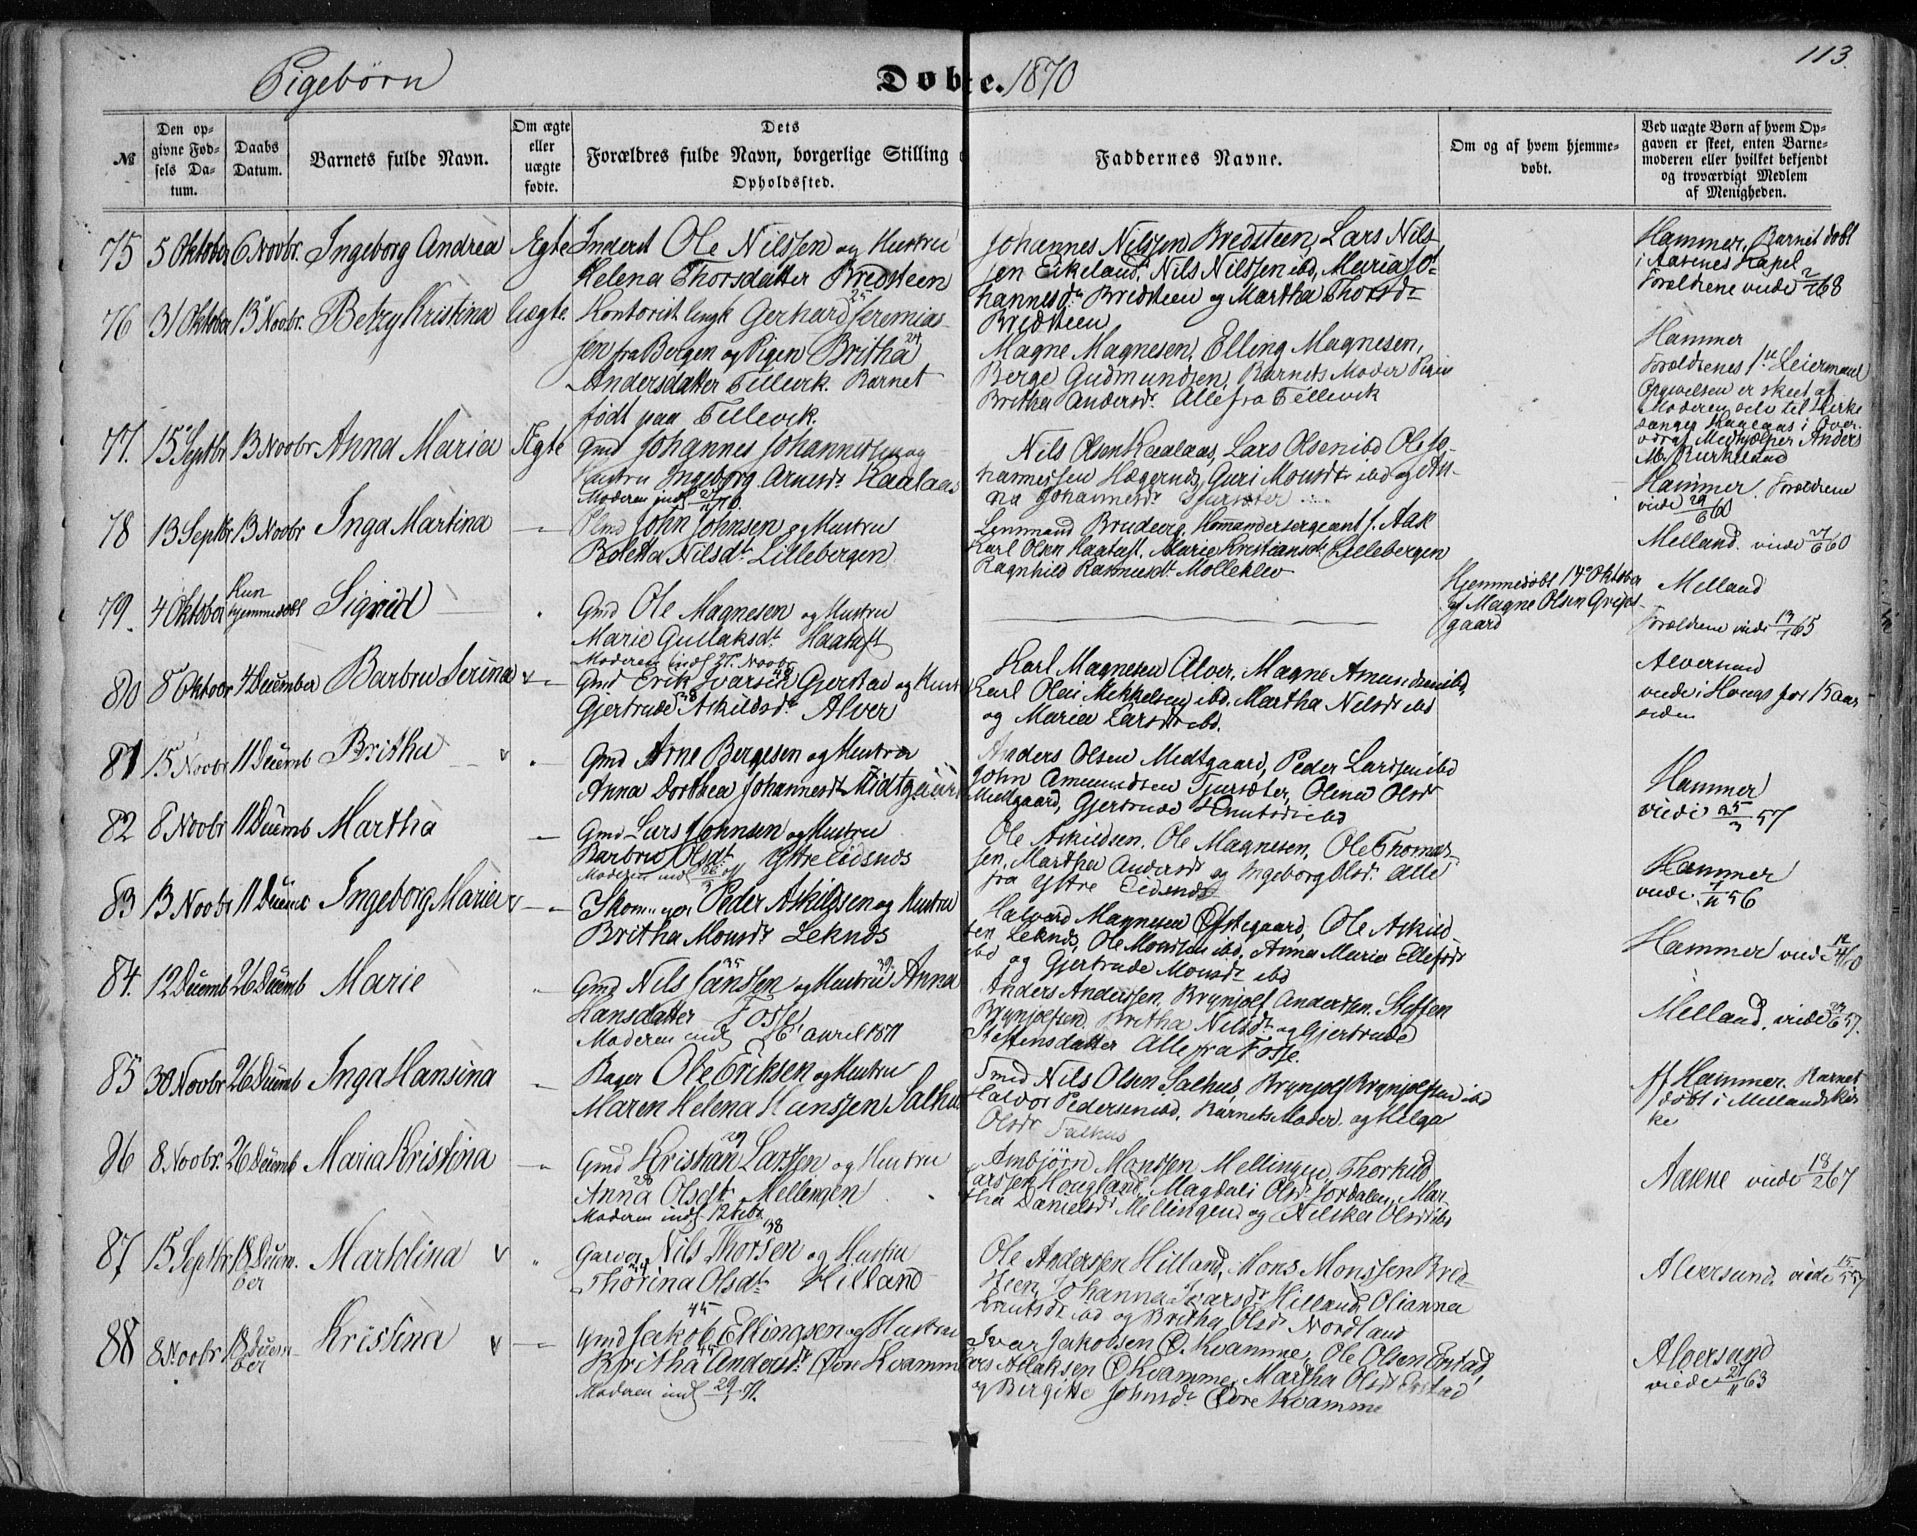 113.
Pigebørn
Døbte. 1870
№
Den op-
givne Fød-
sels Da-
tum.
Daabs
Datum.
Barnets fulde Navn.
Om ægte
eller
uægte
fødte.
Dets
Forældres fulde Navn, borgerlige Stilling
Opholdssted.
Faddernes Navne.
Om og af hvem hjemme-
døbt.
Ved uægte Børn af hvem Op-
gaven er skeet, enten Barne-
moderen eller hvilket bekjendt
og troværdigt Medlem
af Menigheden.
75 5 Oktober 6 Novbr. Ingeborg Andrea Ægte
Inderst Ole Nilssen og Hustru
Helena Thorsdatter Bredsteen
Johannes Nilssen Bredsteen, Lars Nils-
sen Eikeland, Nils Nilssen ibd, Maria Jo-
hannesdr Bredsteen og Martha Thorsdr
Bredsteen
Hammer, Barnet døbt
i Aasenes Kapel
Forældrene viede 2/7 68
76 31 Oktober 13 Novbr. Betzy Kristina Uægte.
Kontorist Gerhard Jeremias- 25
sen fra Bergen og Pigen Britha 24
Andersdatter Tellevik. Barnet
født paa Tellevik.
Magne Magnesen, Elling Magnesen,
Berge Gudmundsen, Barnets Moder Pigen
Britha Andersdr. Alle fra Tellevik
Hammer
Forældrenes 1ste Leiermaal
Opgivelsen er skeet af
Moderen selv til Kirke
sanger Haaaas i Over-
værelse af Medhjælper Anders
M. Birkeland
77. 15 Septbr 13 Novbr Anna Maria Ægte
Gmd Johannes Johannessen og
Hustru Ingeborg Arnesdr Kaalaas
Moderen indl 27/11 70.
Nils Olsen Kaalaas, Lars Olsen ibd Ole Jo-
hannessen Hægernes, Guri Monsdr ibd og An-
na Johannesdr Tjursæter
Hammer. Forældrene
viede 29/6 60
78 13 Septbr 13 Novbr Inga Martina —
Plmd John Johnsen og Hustru
Boletta Nilsdt. Lillebergen
Lensmand Brudevig, Kommandersergeant J. Aak
Karl Olsen Haatuft. Marie Kristiansdt Lillebergen
Ragnhild Rasmusdt Molleklev
Melland. viede 27/6 60
79. 4 Oktober Kun
hjemmedøbt Sigrid
Gmd Ole Magnesen og Hustru
Marie Gullaksdt. Haatuft
Moderen indl 27. Novbr
Hjemmedøbt 14de Oktober
af Magne Olsen Grips-
gaard
Melland
Forældrene viede 13/7 65
80 8 Oktober 4 December Barbru Serina v —
Gmd Erik Ivarsen Gjerstad og Hust 48
Gjertrude Askildsdt. Alver 38
Karl Magnesen Alver, Magne Amundsen ibd,
Karl Olai Mikkelsen ibd. Martha Nilsdr ibd
og Maria Larsdr ibd.
Alversund
viede i Hougs for 15 Aar
siden
81 15 Novbr 11 Decemb Britha v
Gmd Arne Bergesen og Hustru
Anna Dorthea Johannesdt Midtgaard
Anders Olsen Medtgaard, Peder Larssen ibd
John Amundsen Tjursæter, Olena Olsdr
Midtgaard, Gjertrude Knutsdr ibd
Hammer
viede 25/3 57
82 8 Novbr 11 Decemb Martha —
Gmd Lars Johnsen og Hustru
Barbru Olsdt. Ytre Eidsnes
Moderen indl 26/3
Ole Askildsen, Ole Magnesen, Ole Thomas-
sen, Martha Andersdr og Ingeborg Olsdr. Alle
fra Ytre Eidsnes
Hammer
viede 1/11 56
83 13 Novbr 11 Decemb Ingeborg Marie v —
Skomager Peder Askildsen og Hustru
Britha Monsdr Leknes
Halvard Magnesen Øfstegaard, Ole Askild-
sen Leknes, Ole Monsen ibd, Anna Maria Ellefsdr
ibd og Gjertrude Monsdr ibd
Hammer viede 12/4 60
84. 12 Decemb 26 Decemb Marie
Gmd Nils Jansen og Hustru Anna 35 39
Hansdatter Fosse
Moderen indl 16 April 1871
Anders Anderssen, Brynjolf Anderssen, Steffen
Brynjolfsen. Britha Nilsdr og Gjertrude
Steffensdatter Alle fra Fosse.
Melland, viede 23/6 57.
85 30 Novbr 26 Decemb Inga Hansina —
Bager Ole Eriksen og Hustru
Maren Helena Hanssen Salhus
Smed Nils Olsen Salhus, Brynjolf Brynjolfsen ibd
Halvor Pedersen ibd, Barnets Moder. og Helga
Olsdr Salhus
Hammer. Barnet
døbt i Mellands Kir-
ke
86 8 Novbr. 26 Decemb Maria Kristina —
Gmd Kristian Larssen og Hustru 29
Anna Olsdt. Mellingen 28
Moderen indl. 12 Feb.
Ambjørn Monssen Mellingen, Thorkild
Larssen Hougland, Magdeli Olsdr Jordalen, Mar-
tha Danielsdr Mellingen og Nilska Olsdr ibd
Aasene viede 18/2 67
87 15 Septbr 18 Decem-
ber Martolina v
Garver Nils Thorsen og Hustru 38
Thorina Olsdt. Hilland 24
Ole Anderssen Hilland, Mons Monssen Bred-
steen, Johanna Ivarsdr Hilland, Olianna
Knutsdr ibd og Britha Olsdr Nordland
Alversund, viede 15/5 57
88 8 Novbr 18 Decem-
ber Kristina v —
Gmd Jakob Ellingsen og Hustru 45
Britha Andersdr. Øvre Kvamme 45
Moderen indl 29/1 71.
Ivar Jakobsen Ø. Kvamme, Ole Olsen Erstad,
Aslaksen Ø Kvamme, Martha Olsdr Erstad
og Birgitte Johnsdr Øvre Kvamme
Alversund
viede 21/11 63